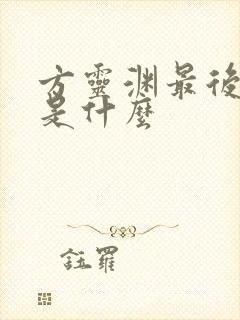 方靈渊最後
是什麼
鈺羅